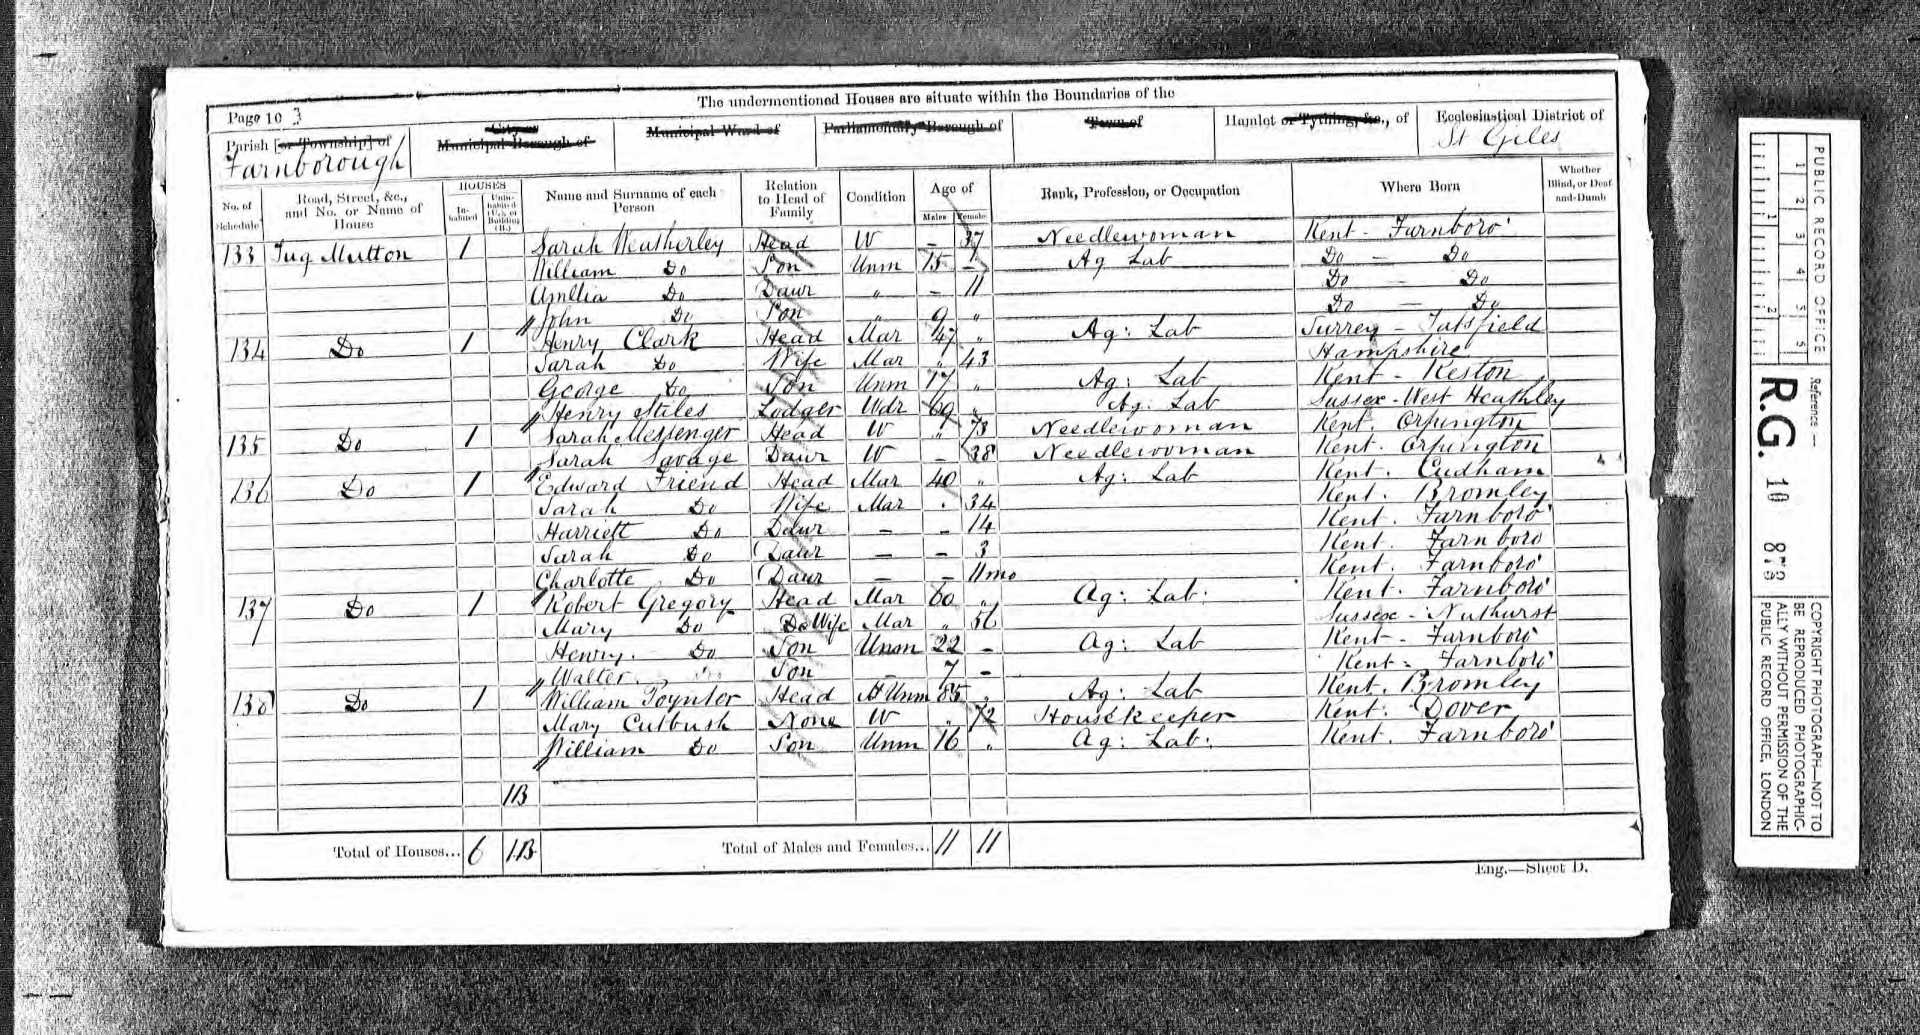 The undermentioned Houses are situate within the Boundaries of the
Page 10 3
Parish [or Township] of
Farnborough
City or
Municipal Borough of
Municipal Ward of
Parliamentary Borough of
Town of
Hamlet or Tything, &c., of
Ecclesiastical District of
St Giles
No. of Schedule
Road, Street, &c., and No. or Name of House
HOUSES
In-habited
Unin-habited (U.), or Building (B.)
Name and Surname of each Person
Relation to Head of Family
Condition
Age of
Males
Females
Rank, Profession, or Occupation
Where Born
Whether Blind, or Deaf and-Dumb
133 Tug Mutton 1 Sarah Weatherley Head W – 37 Needlewoman Kent - Farnboro'
William Do Son Unm 15 – Ag Lab Do – Do
Amllia Do Daur " – 11 Do – Do
John Do Son " 9 " Do – Do
134 Do 1 Henry Clark Head Mar 47 " Ag: Lab Surrey - Tatsfield
Sarah Do Wife Mar " 43 Hampshire
George Do Son Unm 17 " Ag: Lab Kent - Keston
Henry Stiles Lodger Wdr 69 " Ag: Lab Sussex - West Heathley
135 Do 1 Sarah Messenger Head W " 73 Needlewoman Kent. Orpington
Sarah Savage Daur W – 38 Needlewoman Kent. Orpington
136 Do 1 Edward Friend Head Mar 40 " Ag: Lab Kent. Cudham
Sarah Do Wife Mar . 34 Kent. Bromley
Harriett Do Daur – – 14 Kent. Farnboro'
Sarah Do Daur – – 3 Kent. Farnboro
Charlotte Do Daur – – 11 mo Kent. Farnboro'
137 Do 1 Robert Gregory Head Mar 60 " Ag: Lab: Kent. Farnboro'
Mary Do Do Wife Mar " 56 Sussex - Nuthurst
Henry. Do Son Unm 22 – Ag: Lab Kent - Farnboro'
Walter. Son – 7 – Kent - Farnboro'
138 Do 1 William Poynter Head Unm 85 " Ag: Lab Kent. Bromley
Mary Cutbush None W " 72 Housekeeper Kent. Dover
William Do Son Unm 16 " Ag: Lab: Kent. Farnboro'
1B
Total of Houses... 6 1B Total of Males and Females... 11 11
Eng.—Sheet D.
PUBLIC RECORD OFFICE
1 2 3 4 5
1 2
Reference :—
R.G. 10 873
COPYRIGHT PHOTOGRAPH—NOT TO
BE REPRODUCED PHOTOGRAPHIC-
ALLY WITHOUT PERMISSION OF THE
PUBLIC RECORD OFFICE, LONDON